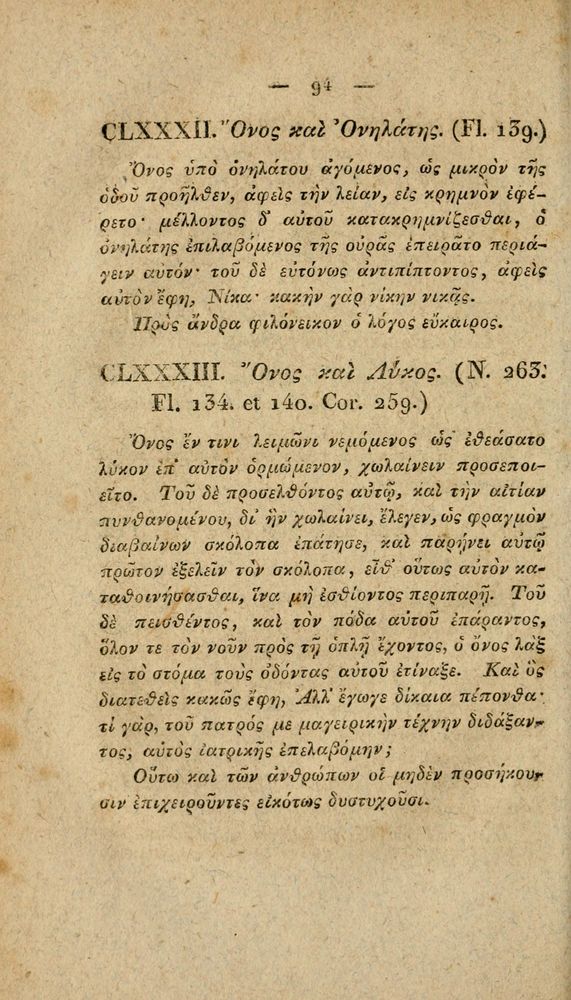 — 94 —
CLXXXII. Ὄνος καὶ Ὀνηλάτης. (Fl. 139.)
Ὄνος ὑπὸ ὀνηλάτου ἀγόμενος, ὡς μικρὸν τῆς
ὁδοῦ προῆλθεν, ἀφεὶς τὴν λείαν, εἰς κρημνὸν ἐφέ-
ρετο· μέλλοντος δ' αὐτοῦ κατακρημνίζεσθαι, ὁ
ὀνηλάτης ἐπιλαβόμενος τῆς οὐρᾶς ἐπειρᾶτο περιά-
γειν αὐτόν· τοῦ δὲ εὐτόνως ἀντιπίπτοντος, ἀφεὶς
αὐτὸν ἔφη, Νίκα· κακὴν γὰρ νίκην νικᾷς.
Πρὸς ἄνδρα φιλόνεικον ὁ λόγος εὔκαιρος.
CLXXXIII. Ὄνος καὶ Λύκος. (N. 263.
Fl. 134. et 140. Cor. 259.)
Ὄνος ἔν τινι λειμῶνι νεμόμενος ὡς ἐθεάσατο
λύκον ἐπ' αὐτὸν ὁρμώμενον, χωλαίνειν προσεποι-
εῖτο. Τοῦ δὲ προσελθόντος αὐτῷ, καὶ τὴν αἰτίαν
πυνθανομένου, δι' ἣν χωλαίνει, ἔλεγεν, ὡς φραγμὸν
διαβαίνων σκόλοπα ἐπάτησε, καὶ παρῄνει αὐτῷ
πρῶτον ἐξελεῖν τὸν σκόλοπα, εἶθ' οὕτως αὐτὸν κα-
ταθοινήσασθαι, ἵνα μὴ ἐσθίοντος περιπαρῇ. Τοῦ
δὲ πεισθέντος, καὶ τὸν πόδα αὐτοῦ ἐπάραντος,
ὅλον τε τὸν νοῦν πρὸς τῇ ὁπλῇ ἔχοντος, ὁ ὄνος λὰξ
εἰς τὸ στόμα τοὺς ὀδόντας αὐτοῦ ἐτίναξε. Καὶ ὃς
διατεθεὶς κακῶς ἔφη, Ἀλλ' ἔγωγε δίκαια πέπονθα·
τί γὰρ, τοῦ πατρός με μαγειρικὴν τέχνην διδάξαν-
τος, αὐτὸς ἰατρικῆς ἐπελαβόμην;
Οὕτω καὶ τῶν ἀνθρώπων οἱ μηδὲν προσήκου-
σιν ἐπιχειροῦντες εἰκότως δυστυχοῦσι.